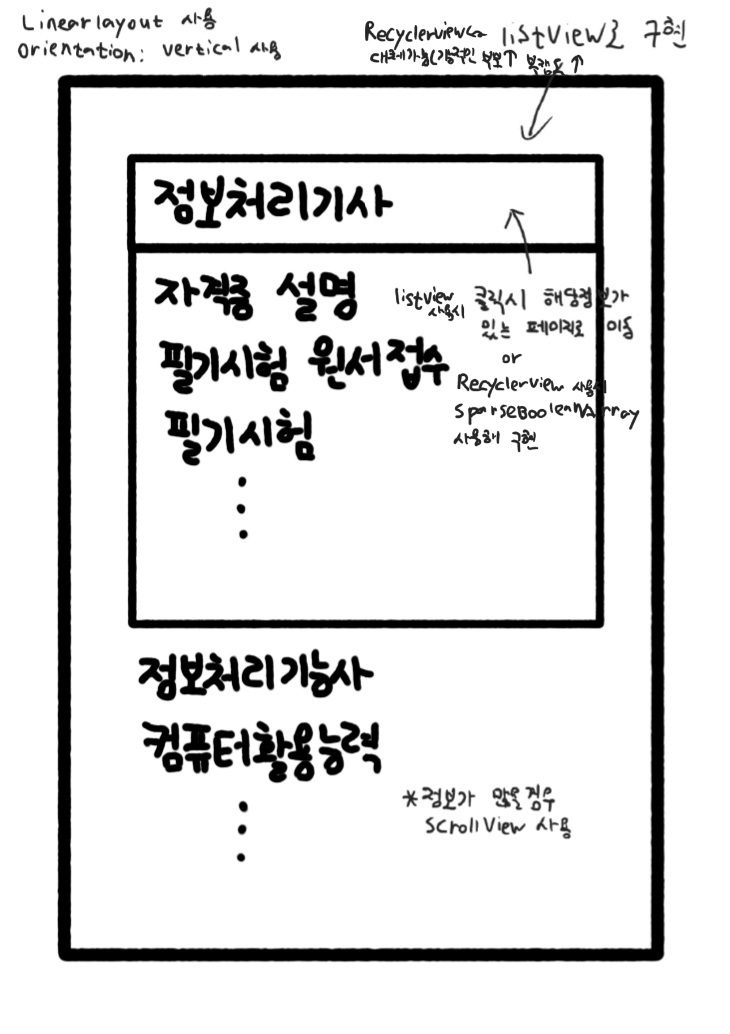 Linearlayout 사용
Orientation: vertical 사용
Recyclerview로 listview로 구현
대체가능(기능적인 부분↑ 복잡도↑
정보처리기사
자격증 설명
listview 사용시 클릭시 해당정보가
있는 페이지로 이동
필기시험 원서접수
or
Recyclerview 사용시
SparseBooleanArray
사용해 구현
필기시험
정보처리기능사
컴퓨터활용능력
*정보가 많을경우
ScrollView 사용